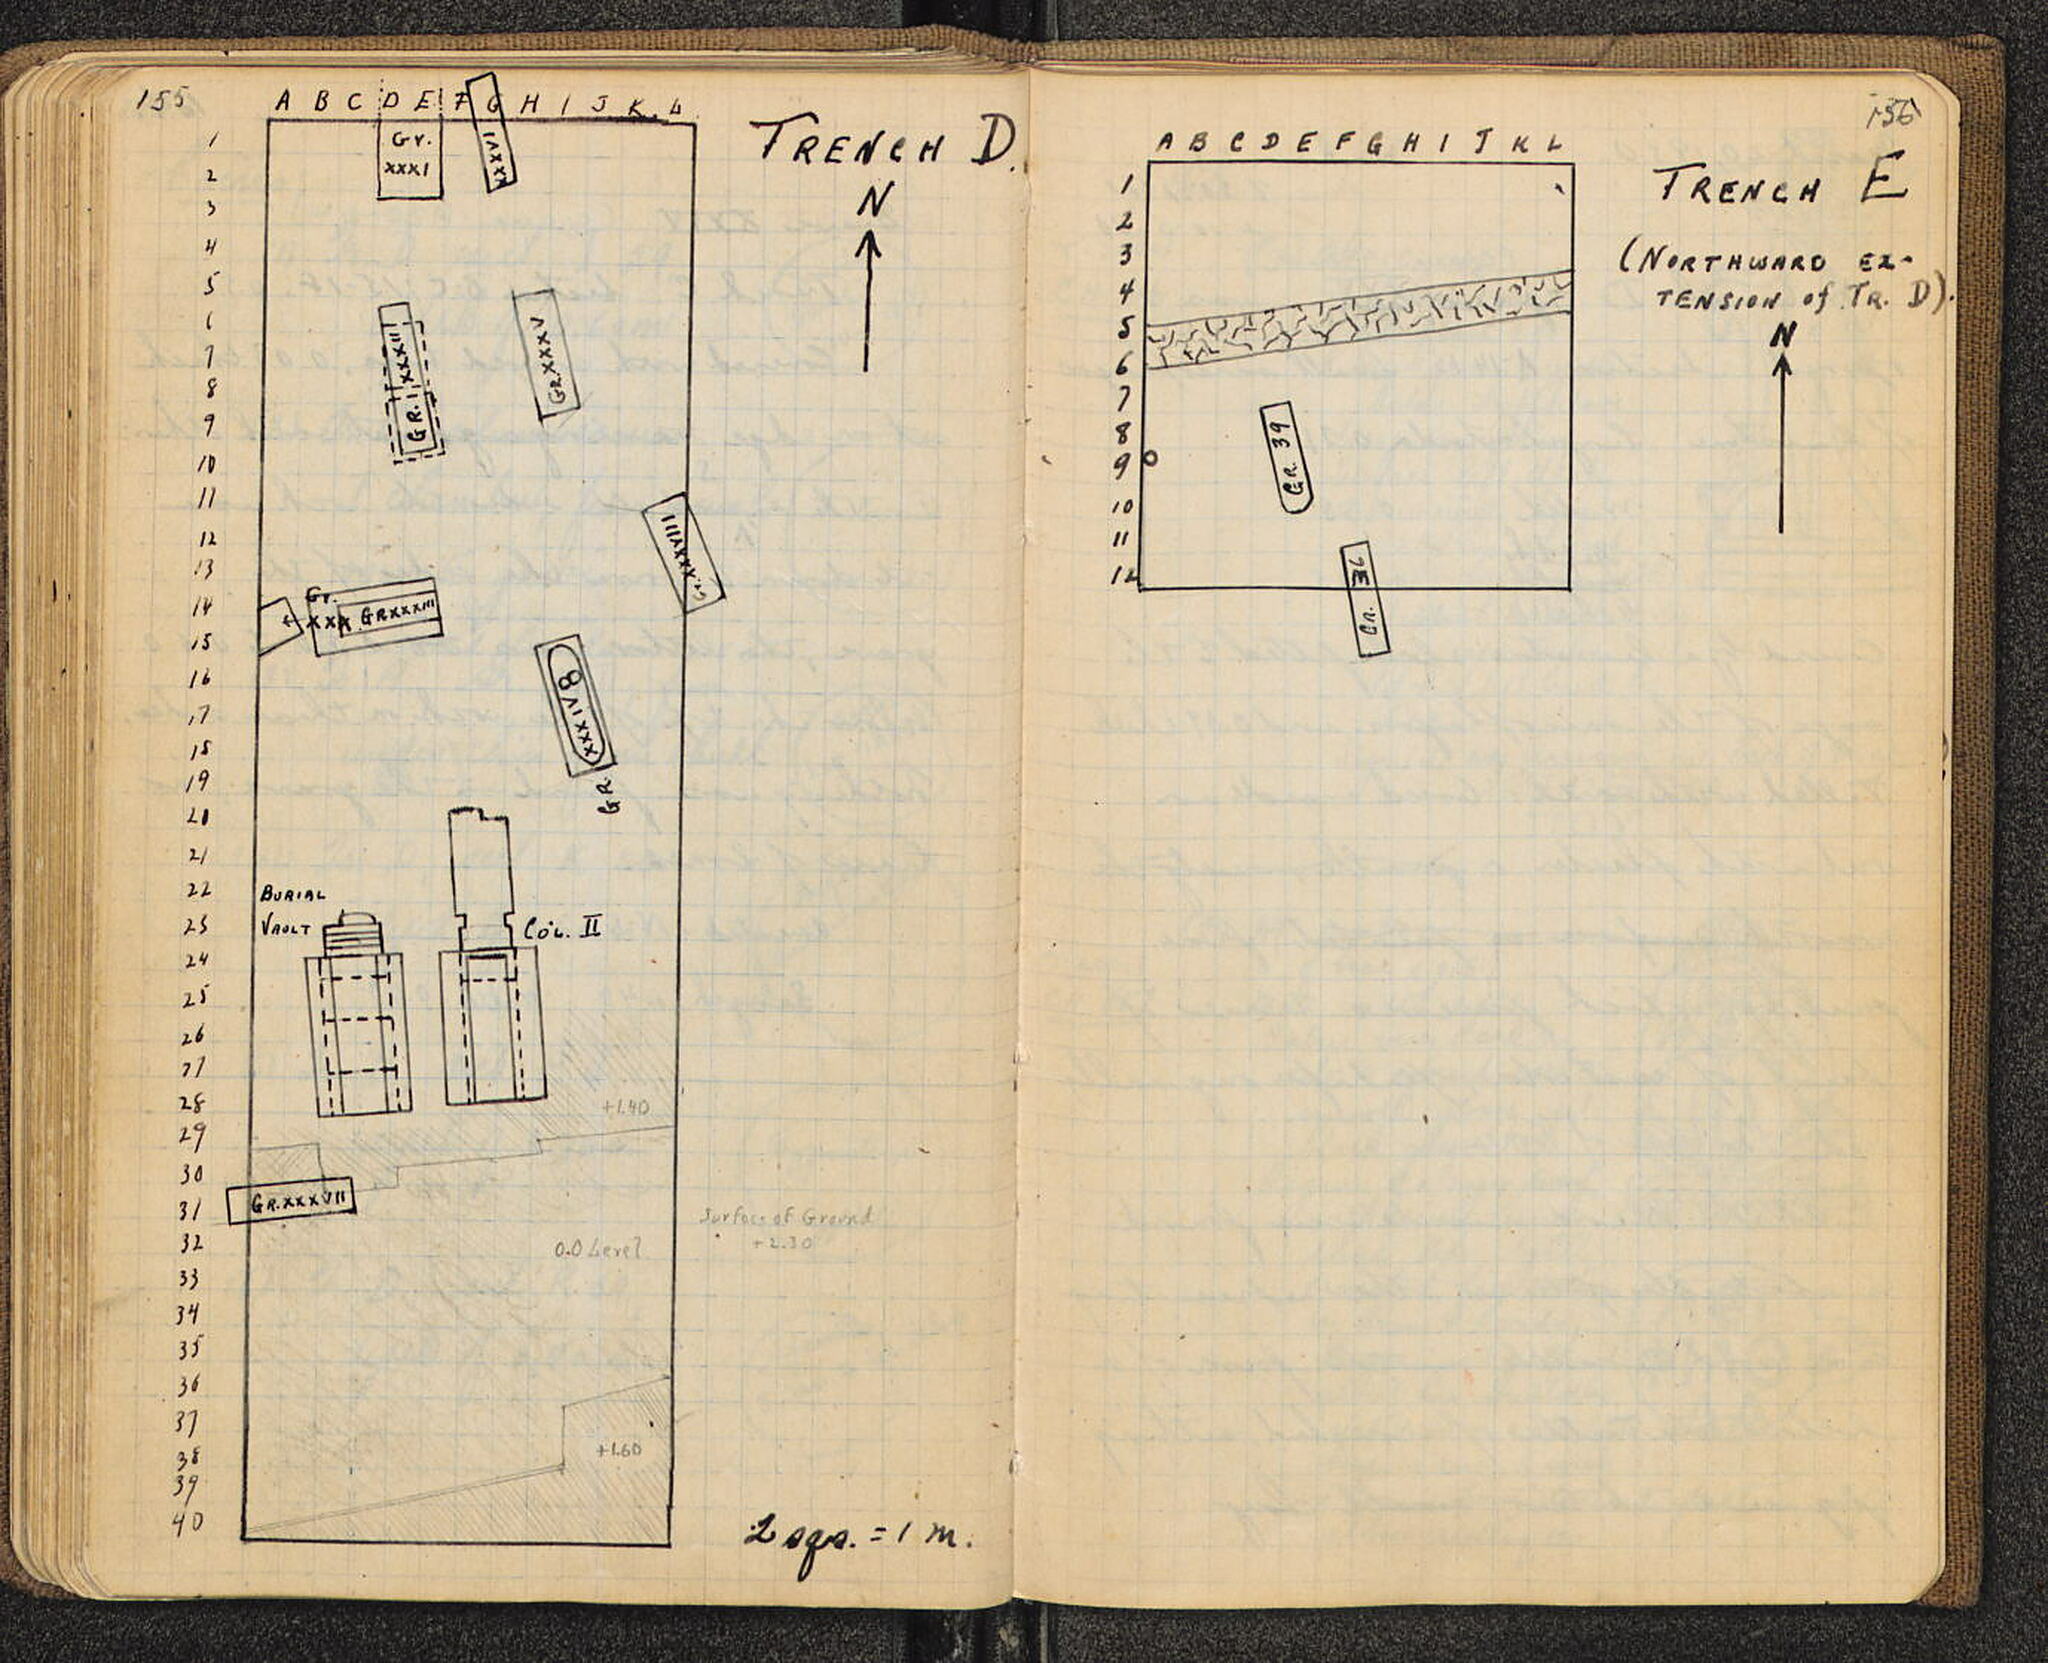 155
A B C D E F G H I J K L
TRENCH D.
N
1
2
3
4
5
6
7
8
9
10
11
12
13
14
15
16
17
18
19
20
21
22
23
24
25
26
27
28
29
30
31
32
33
34
35
36
37
38
39
40
Gr.
XXXI
XXXVI
GR. XXXII
GR. XXXV
Gr. XXXVIII
Gr.
XXX
GR XXXIII
GR. XXXIV 8
BURIAL
VAULT
COL. II
+1.40
GR. XXXVII
Surface of Ground
+2.30
0.0 Level
+1.60
2 sqs. = 1 m.
156
A B C D E F G H I J K L
TRENCH E
(NORTHWARD EX-
TENSION of TR. D).
N
1
2
3
4
5
6
7
8
9
10
11
12
GR. 39
GR. 36